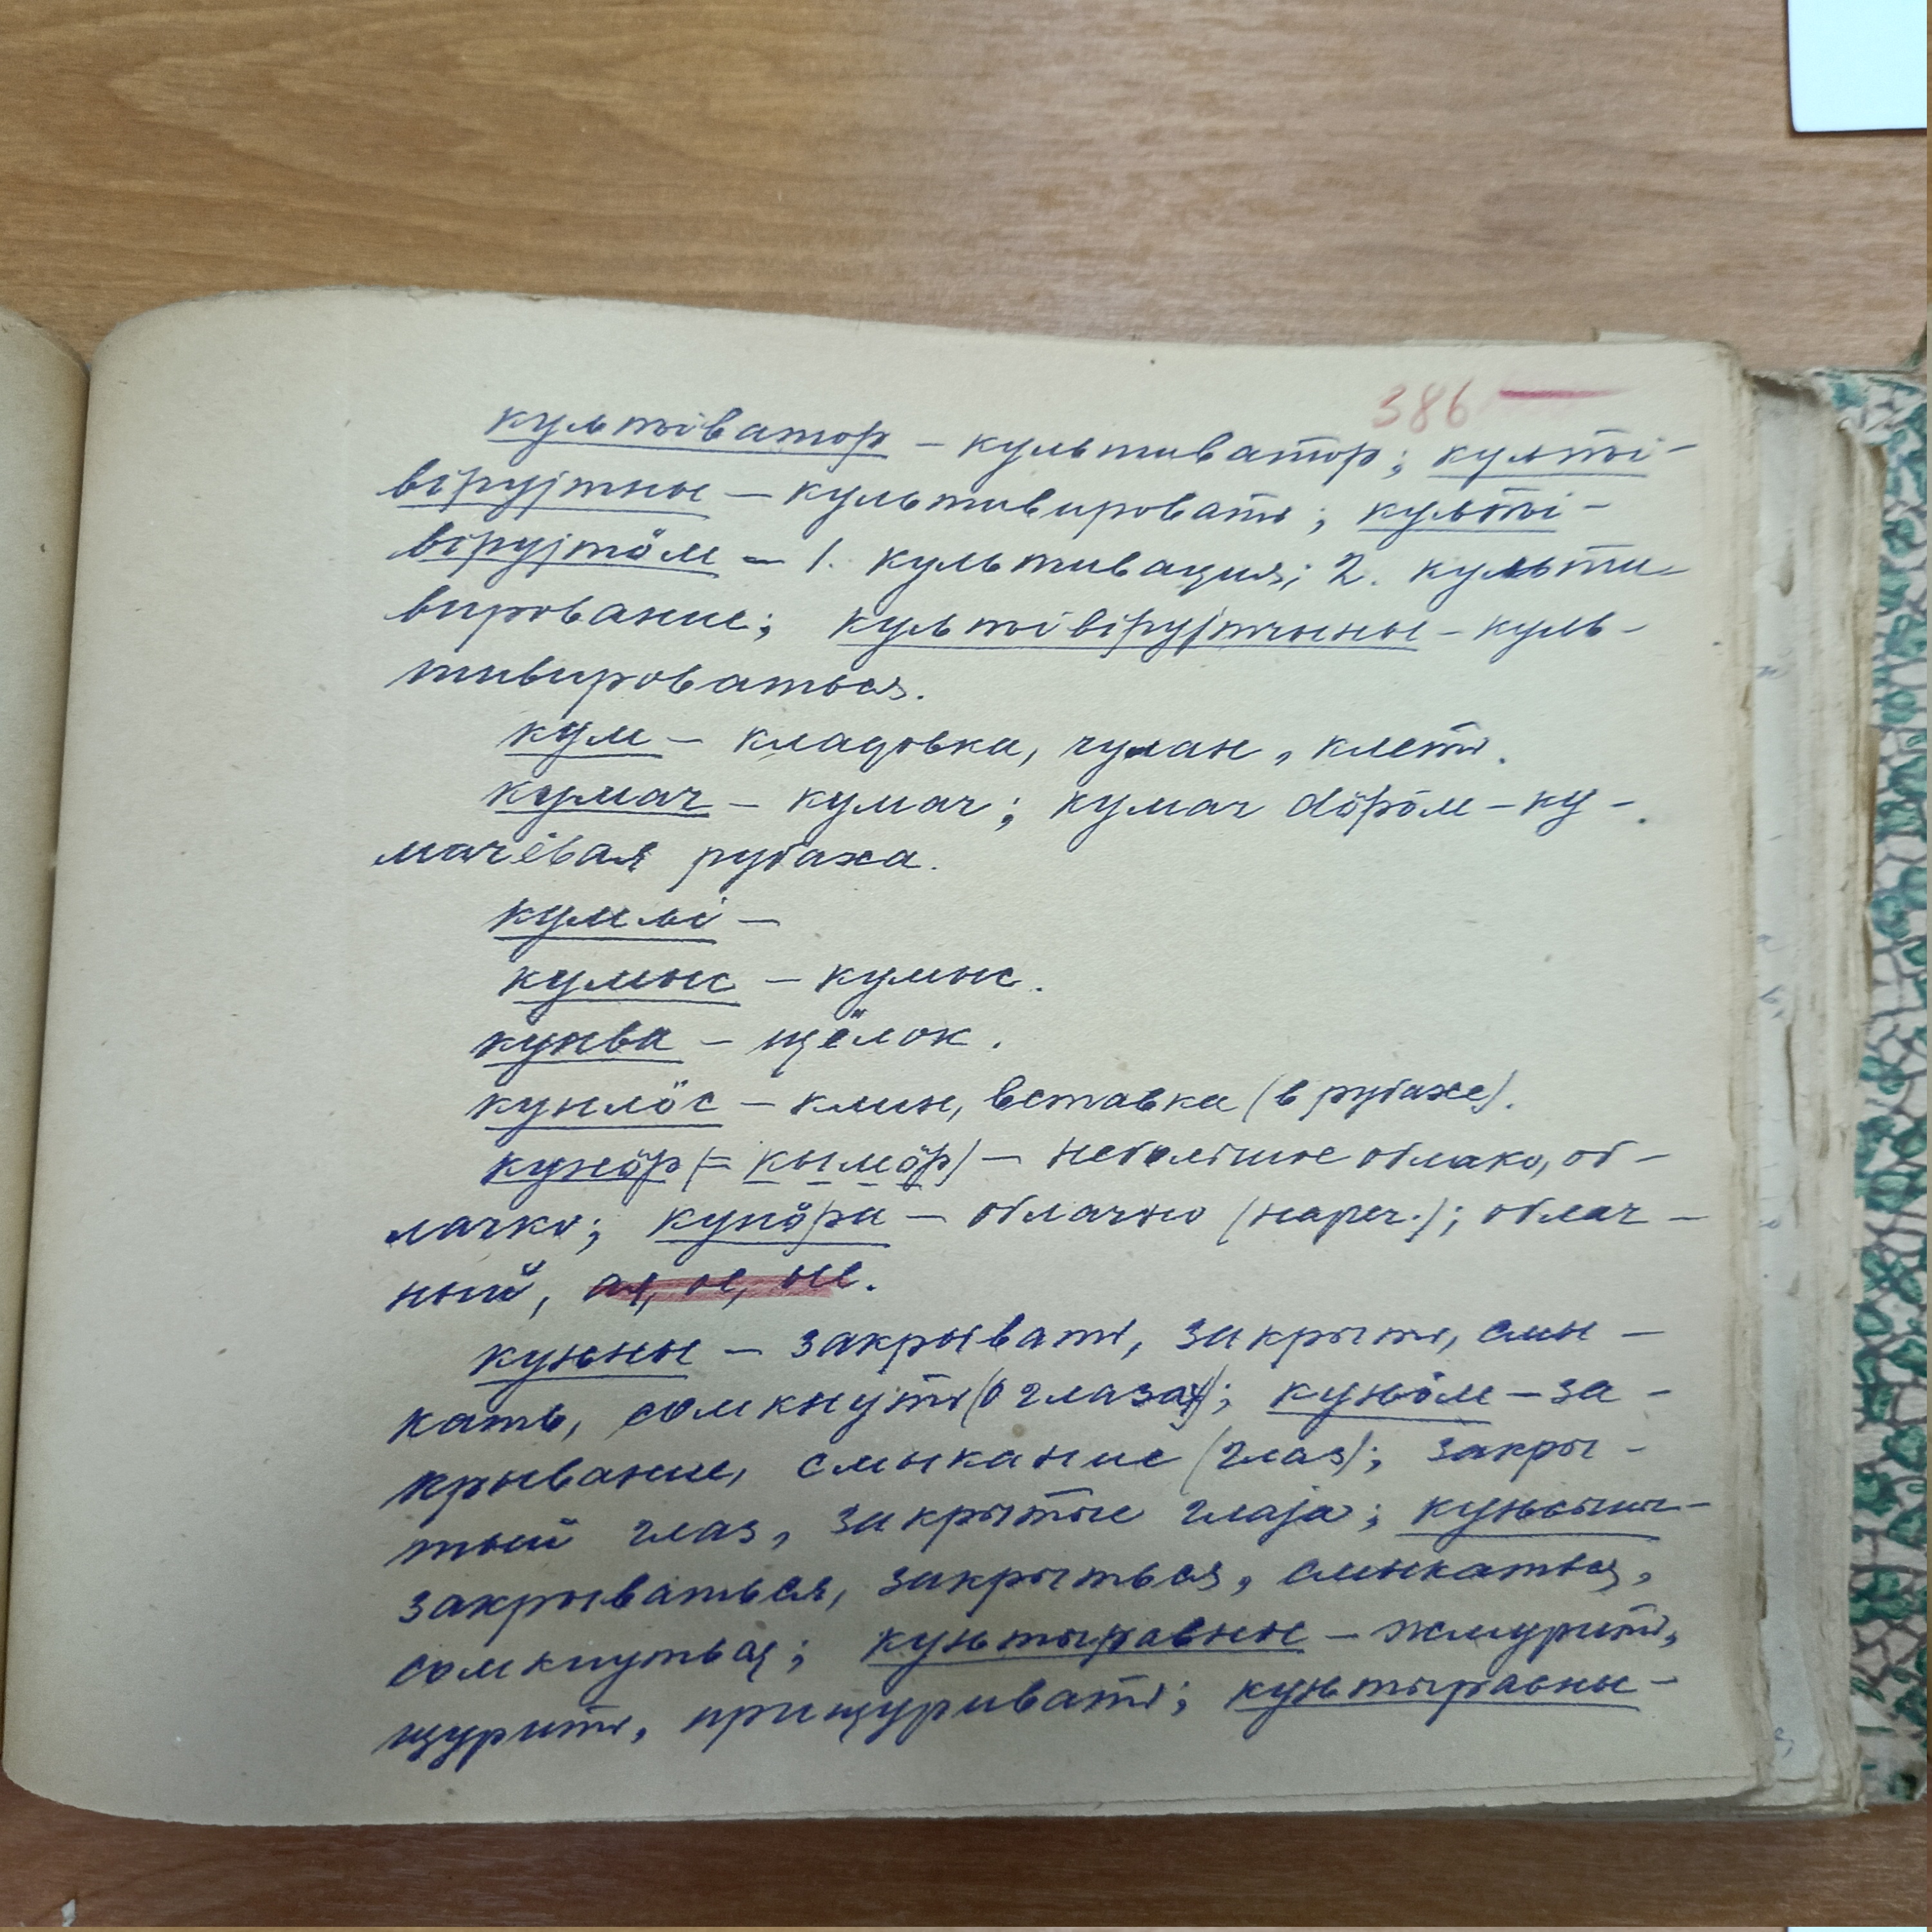 386
культіватор – культиватор; культі-
вірујтны – культивировать; культі-
вірујтӧм – 1. культивация; 2. культи-
вирование; культівірујтчыны – куль-
тивироваться.
кум – кладовка, чулан, клеть.
кумач – кумач; кумач дӧрӧм – ку-
мачёвая рубаха.
кумлі –
кумыс – кумыс.
кунва – щёлок.
кунлӧс – клин, вставка (в рубахе).
кунӧр (= кымӧр) – небольшое облако, об-
лачко; кунӧра – облачно (нареч.); облач-
ный, ая, ое, ые.
куньны – закрывать, закрыть, смы-
кать, сомкнуть (о глазах); куньӧм – за-
крывание, смыкание (глаз); закры-
тый глаз, закрытые глаза; куньсыны –
закрываться, закрыться, смыкаться,
сомкнуться; куньтыравны – жмурить,
щурить, прищуривать; куньтырасны –